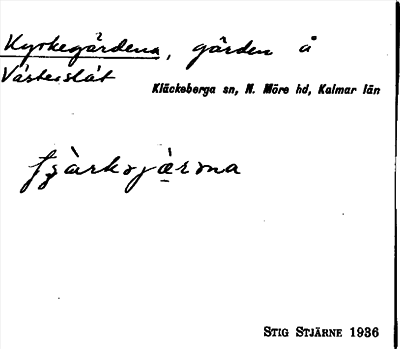 Kyrkegårdena, gården å
Västerslät
Kläckeberga sn, N. Möre hd, Kalmar län
STIG STJÄRNE 1936